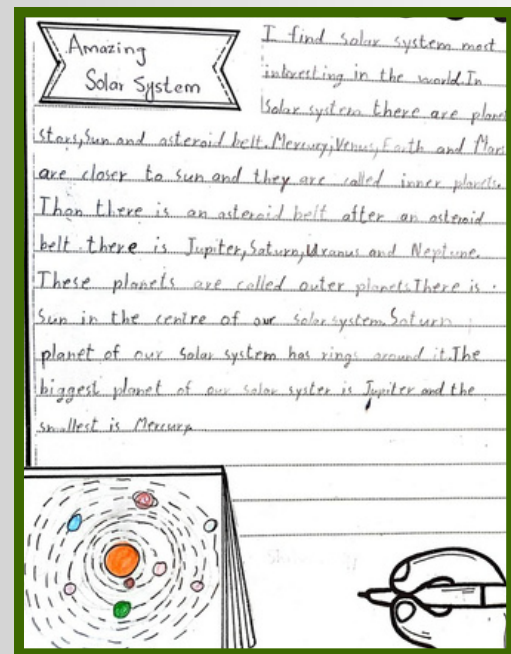 Amazing
Solar System
I find solar system most
interesting in the world.In
solar system there are plane
stars,Sun and asteroid belt.Mercury,Venus,Earth and Mars
are closer to sun and they are called inner planets.
Then there is an asteroid belt after an asteroid
belt there is Jupiter,Saturn,Uranus and Neptune.
These planets are called outer planets.There is
Sun in the centre of our solar system.Saturn
planet of our solar system has rings around it.The
biggest planet of our solar syster is Jupiter and the
smallest is Mercury